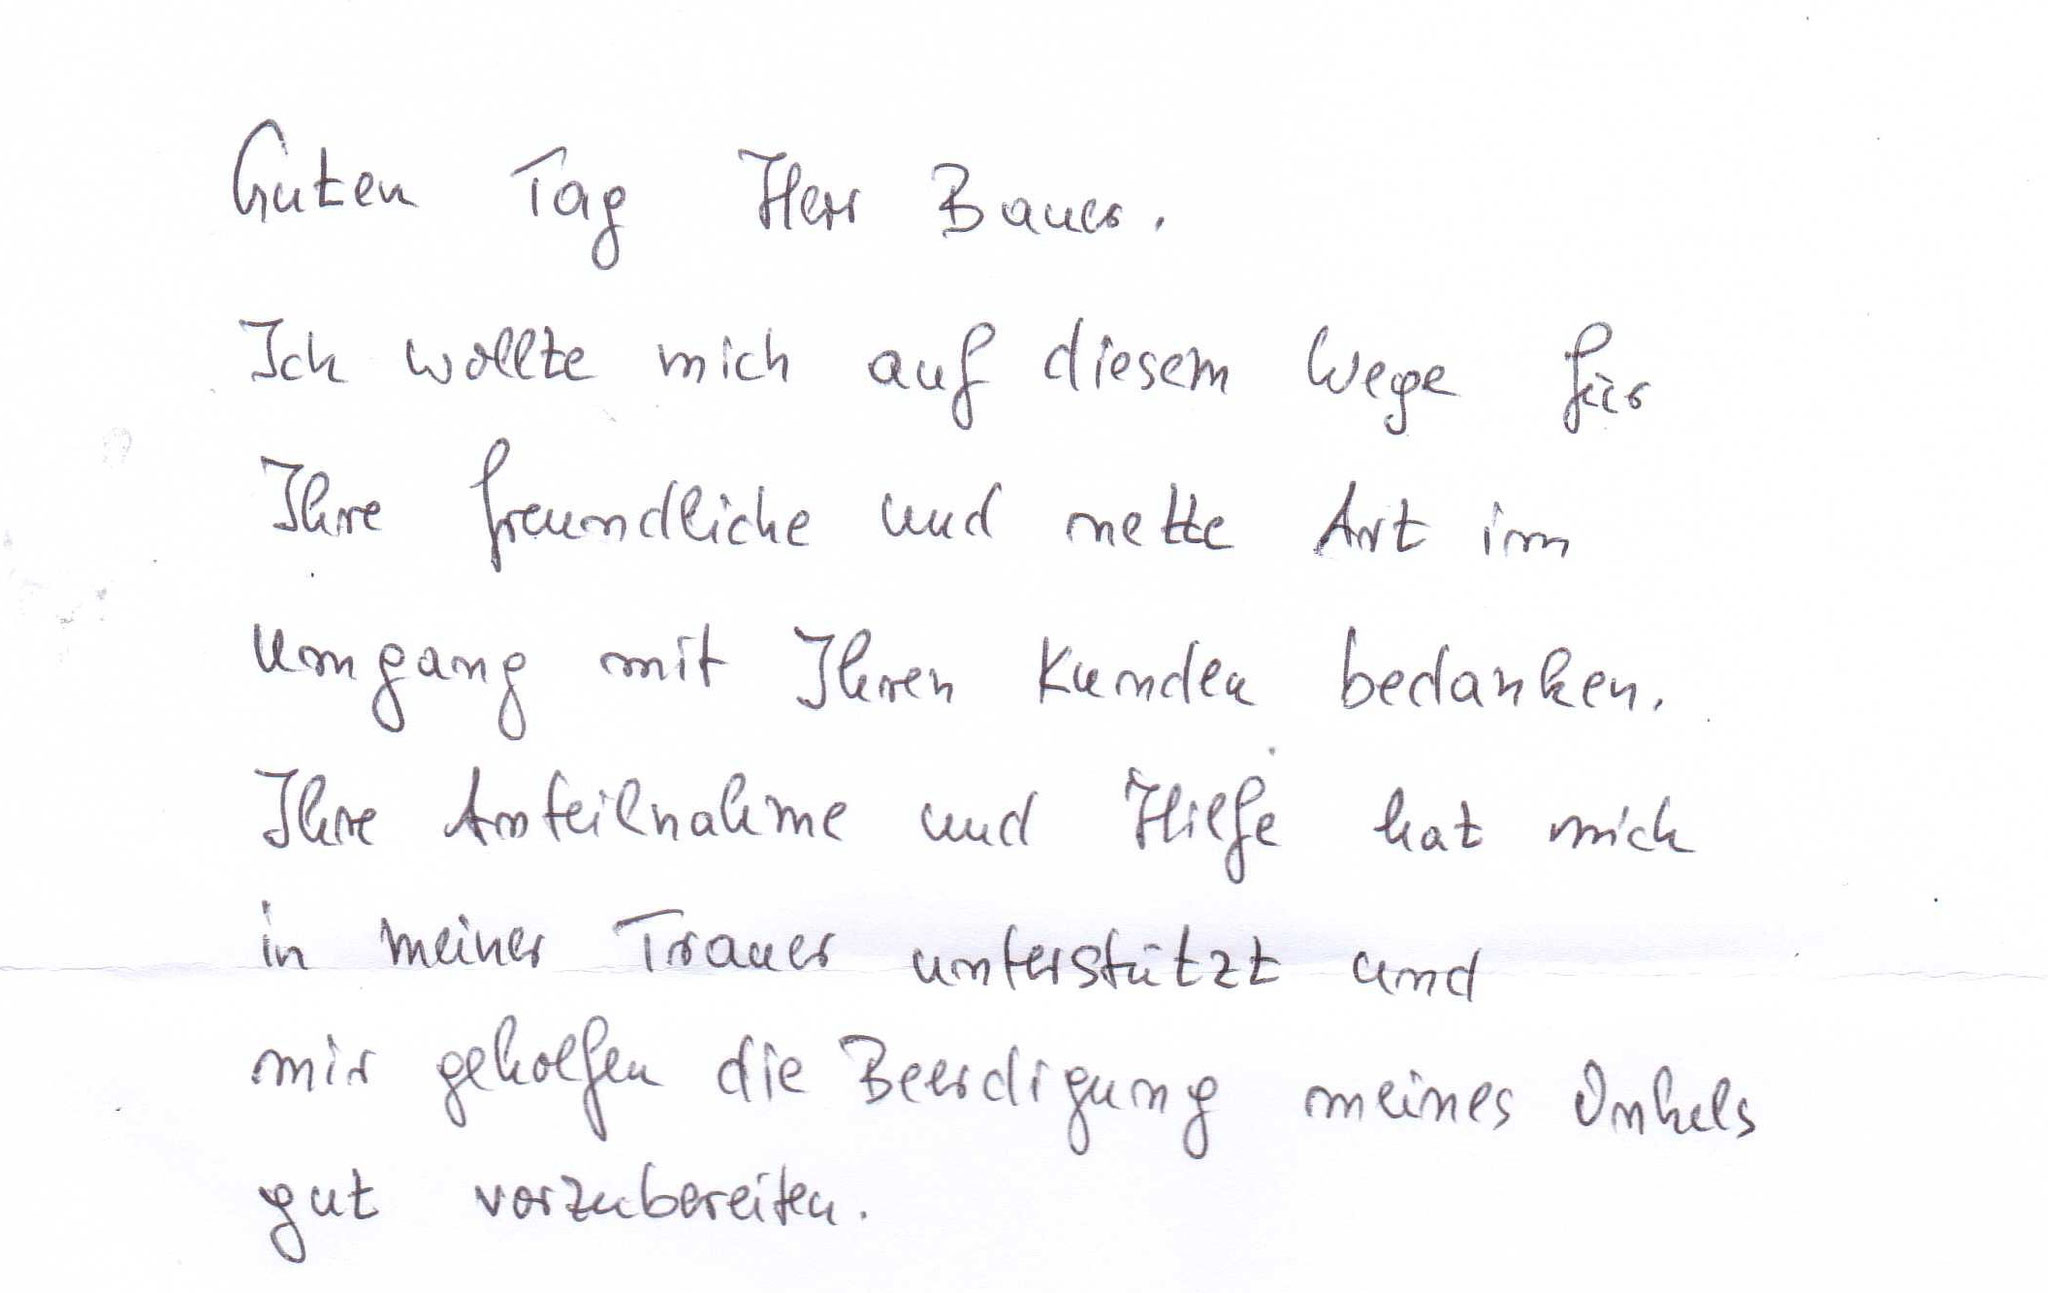 Guten Tag Herr Bauer.
Ich wollte mich auf diesem Wege für
Ihre freundliche und nette Art im
Umgang mit Ihren Kunden bedanken.
Ihre Anteilnahme und Hilfe hat mich
in meiner Trauer unterstützt und
mir geholfen die Beerdigung meines Onkels
gut vorzubereiten.